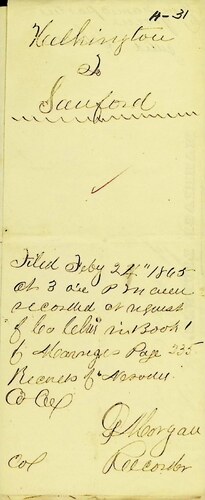 H-31
Huthington
to
Sanford
Filed Feby 24th 1865
at 3 P M and
recorded at request
of Co Clk in Book 1
of Marriages Page 235
Records of Nevada
Co Cal
Morgan
Recorder
Col